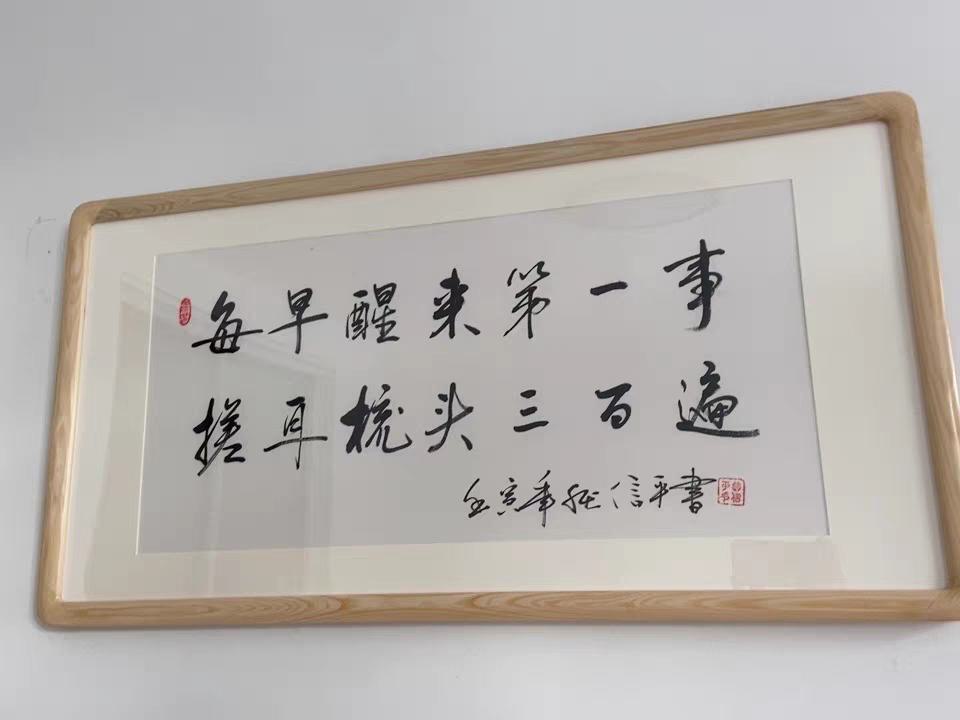 每早醒来第一事
搓耳梳头三百遍
壬寅年张信平書